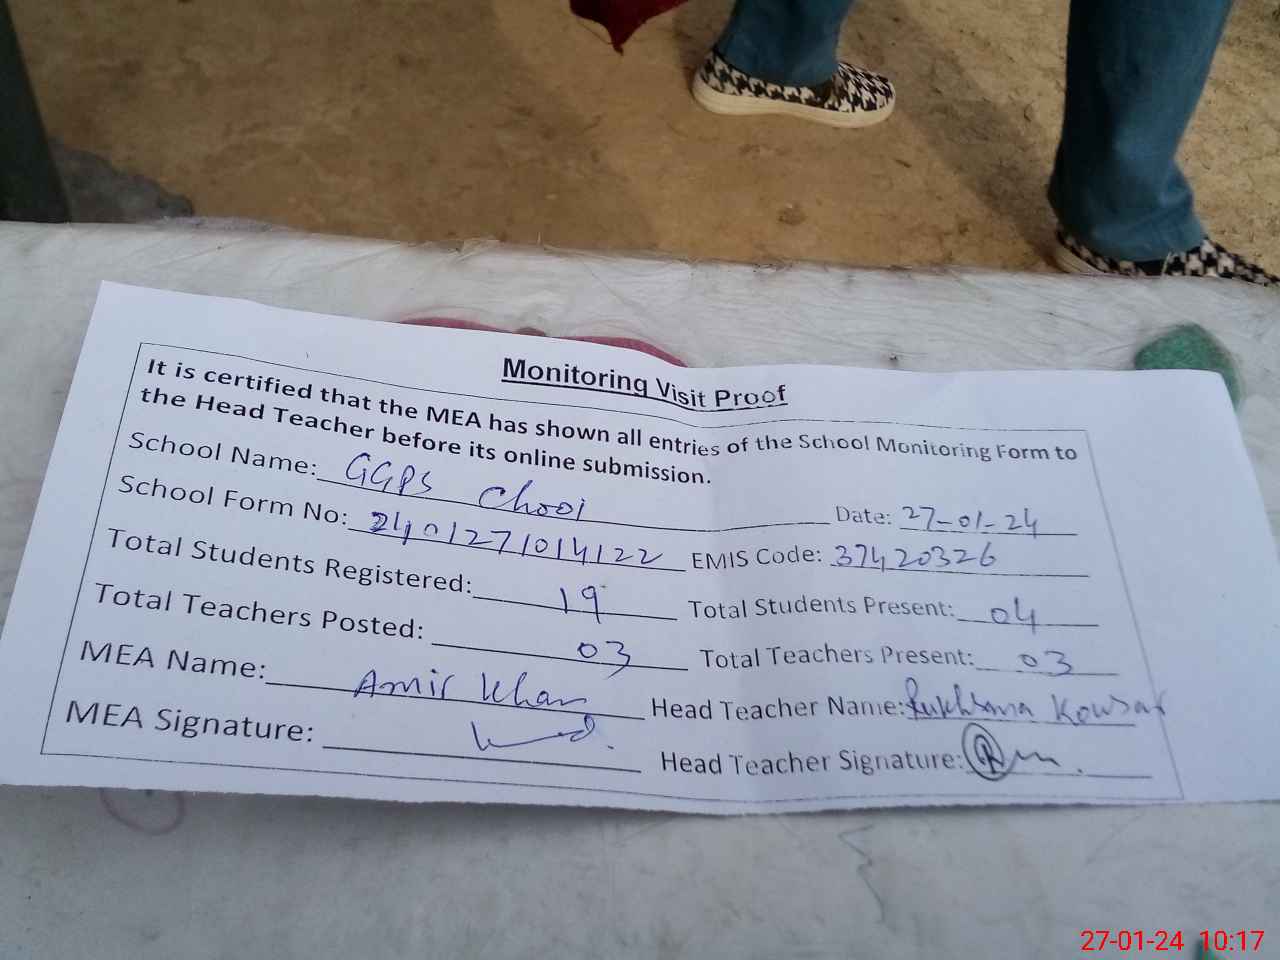 Monitoring Visit Proof
It is certified that the MEA has shown all entries of the School Monitoring Form to
the Head Teacher before its online submission.
School Name: GGPS Chooi Date: 27-01-24
School Form No: 2401271014122 EMIS Code: 37420326
Total Students Registered: 19 Total Students Present: 04
Total Teachers Posted: 03 Total Teachers Present: 03
MEA Name: Amir Khan Head Teacher Name: Rukhsana Kowsar
MEA Signature: Head Teacher Signature:
27-01-24 10:17